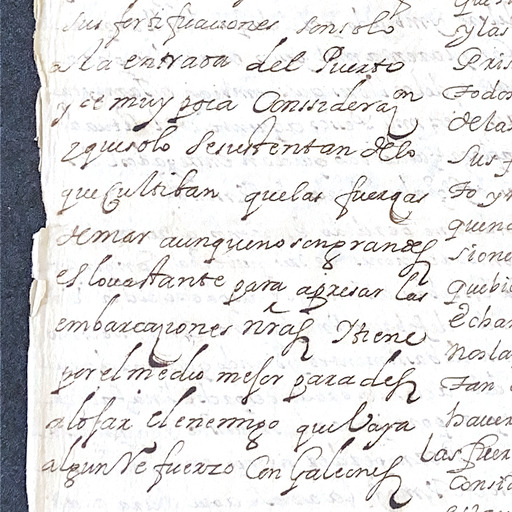 sus fortificaciones son solo
a la entrada del Puerto
y de muy poca Conssideraon
y que solo se sustentan de lo
que Cultiban que las fuerças
de mar aunque no son grandes
es lo vastante para apresar las
embarcaziones nras Y tiene
por el medio mejor para des
alojar el enemigo que Vaya
algun Refuerzo Con Galeones
que
y las
Pris
todos
de las
sus f
to y
quen
sion
que bi
echar
nos la
tan
haver
las fuer
Consi